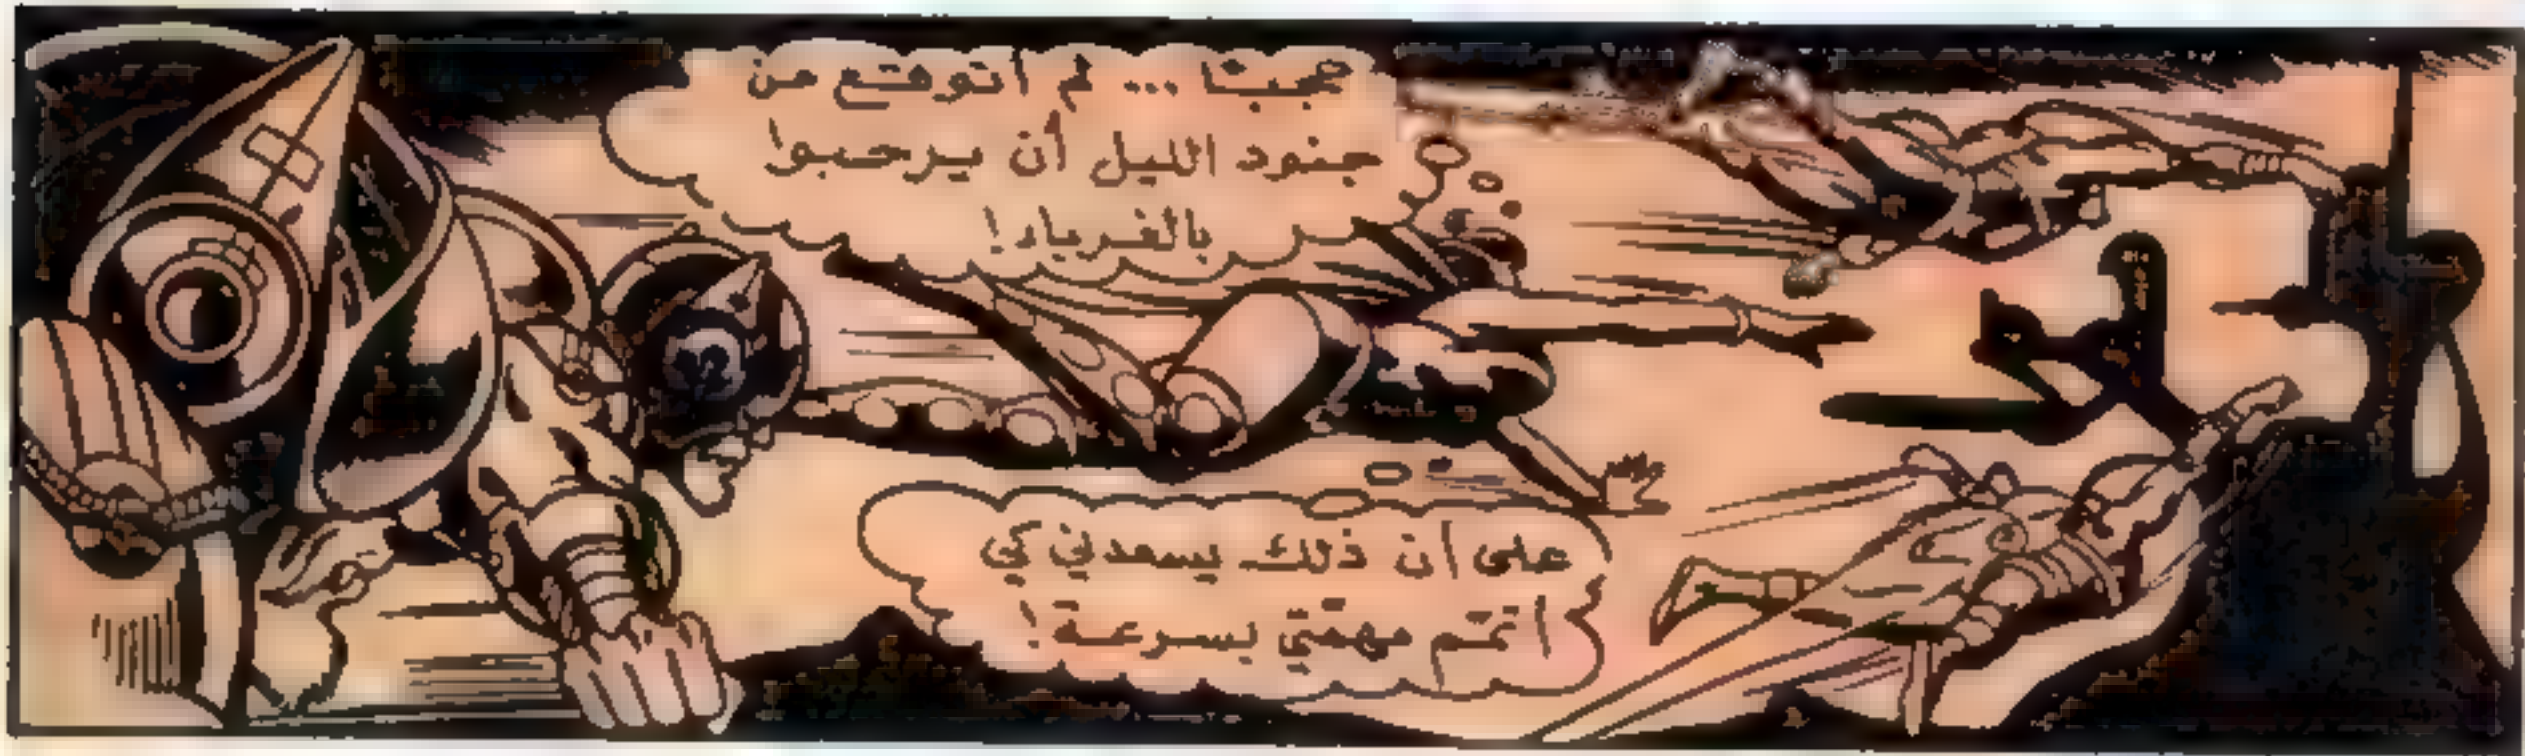 عجبًا ... لم أتوقع من
جنود الليل أن يرحبوا
بالغرباء!
على أن ذلك يسعدني كي
اتمّم مهمتي بسرعة!